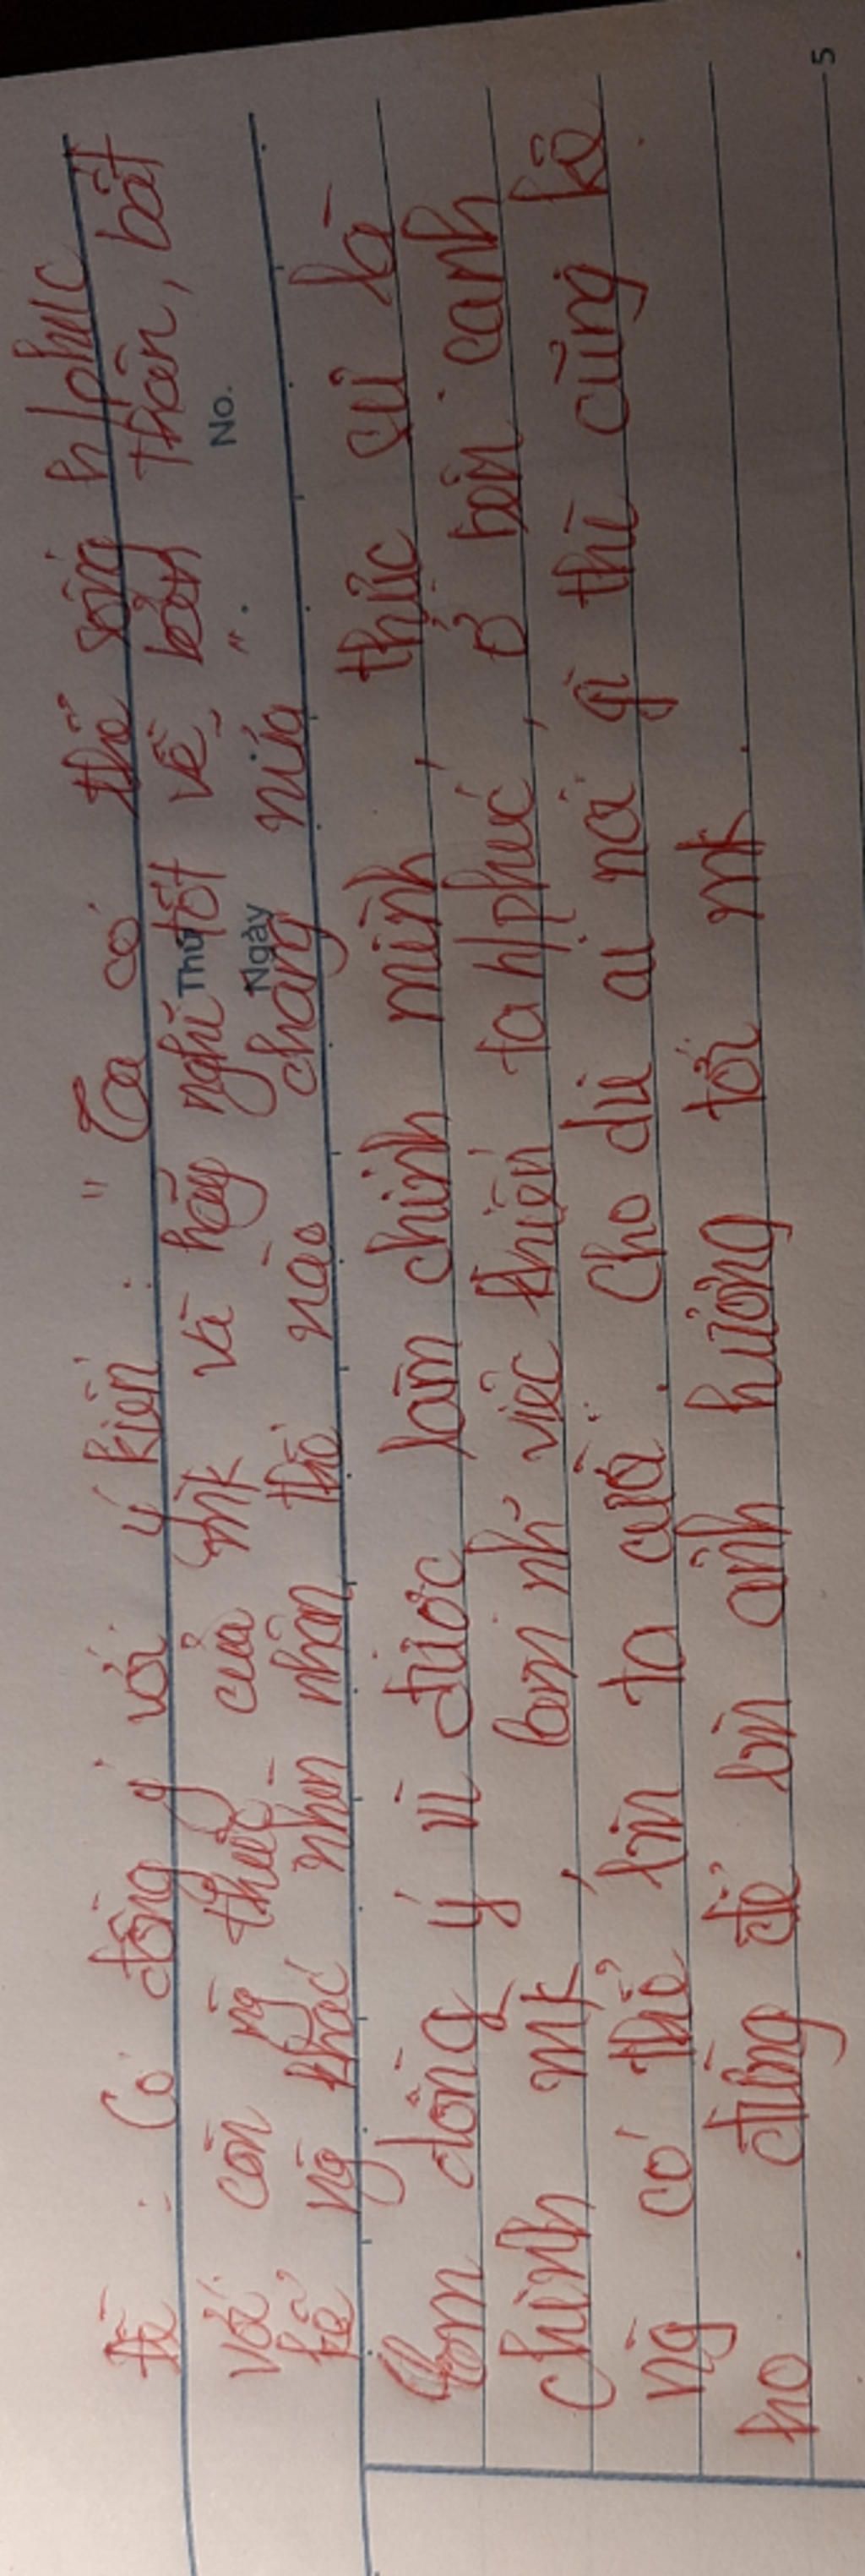 Đề : Có đồng ý với ý kiến : " Ta có thể sống h/phúc
với còn ng thực của mk và hãy nghĩ tốt về bản thân, bất
kể ng khác nhìn nhận thế nào chăng nữa ".
Thứ
Ngày
No.
Em đồng ý vì được làm chính mình, thực sự là
chính mk, làm nh~ việc khiến ta h/phúc, ở bên cạnh
ng có thể làm ta cười. Cho dù ai nói gì thì cũng kệ
họ. đừng để làm ảnh hưởng tới mk.
5